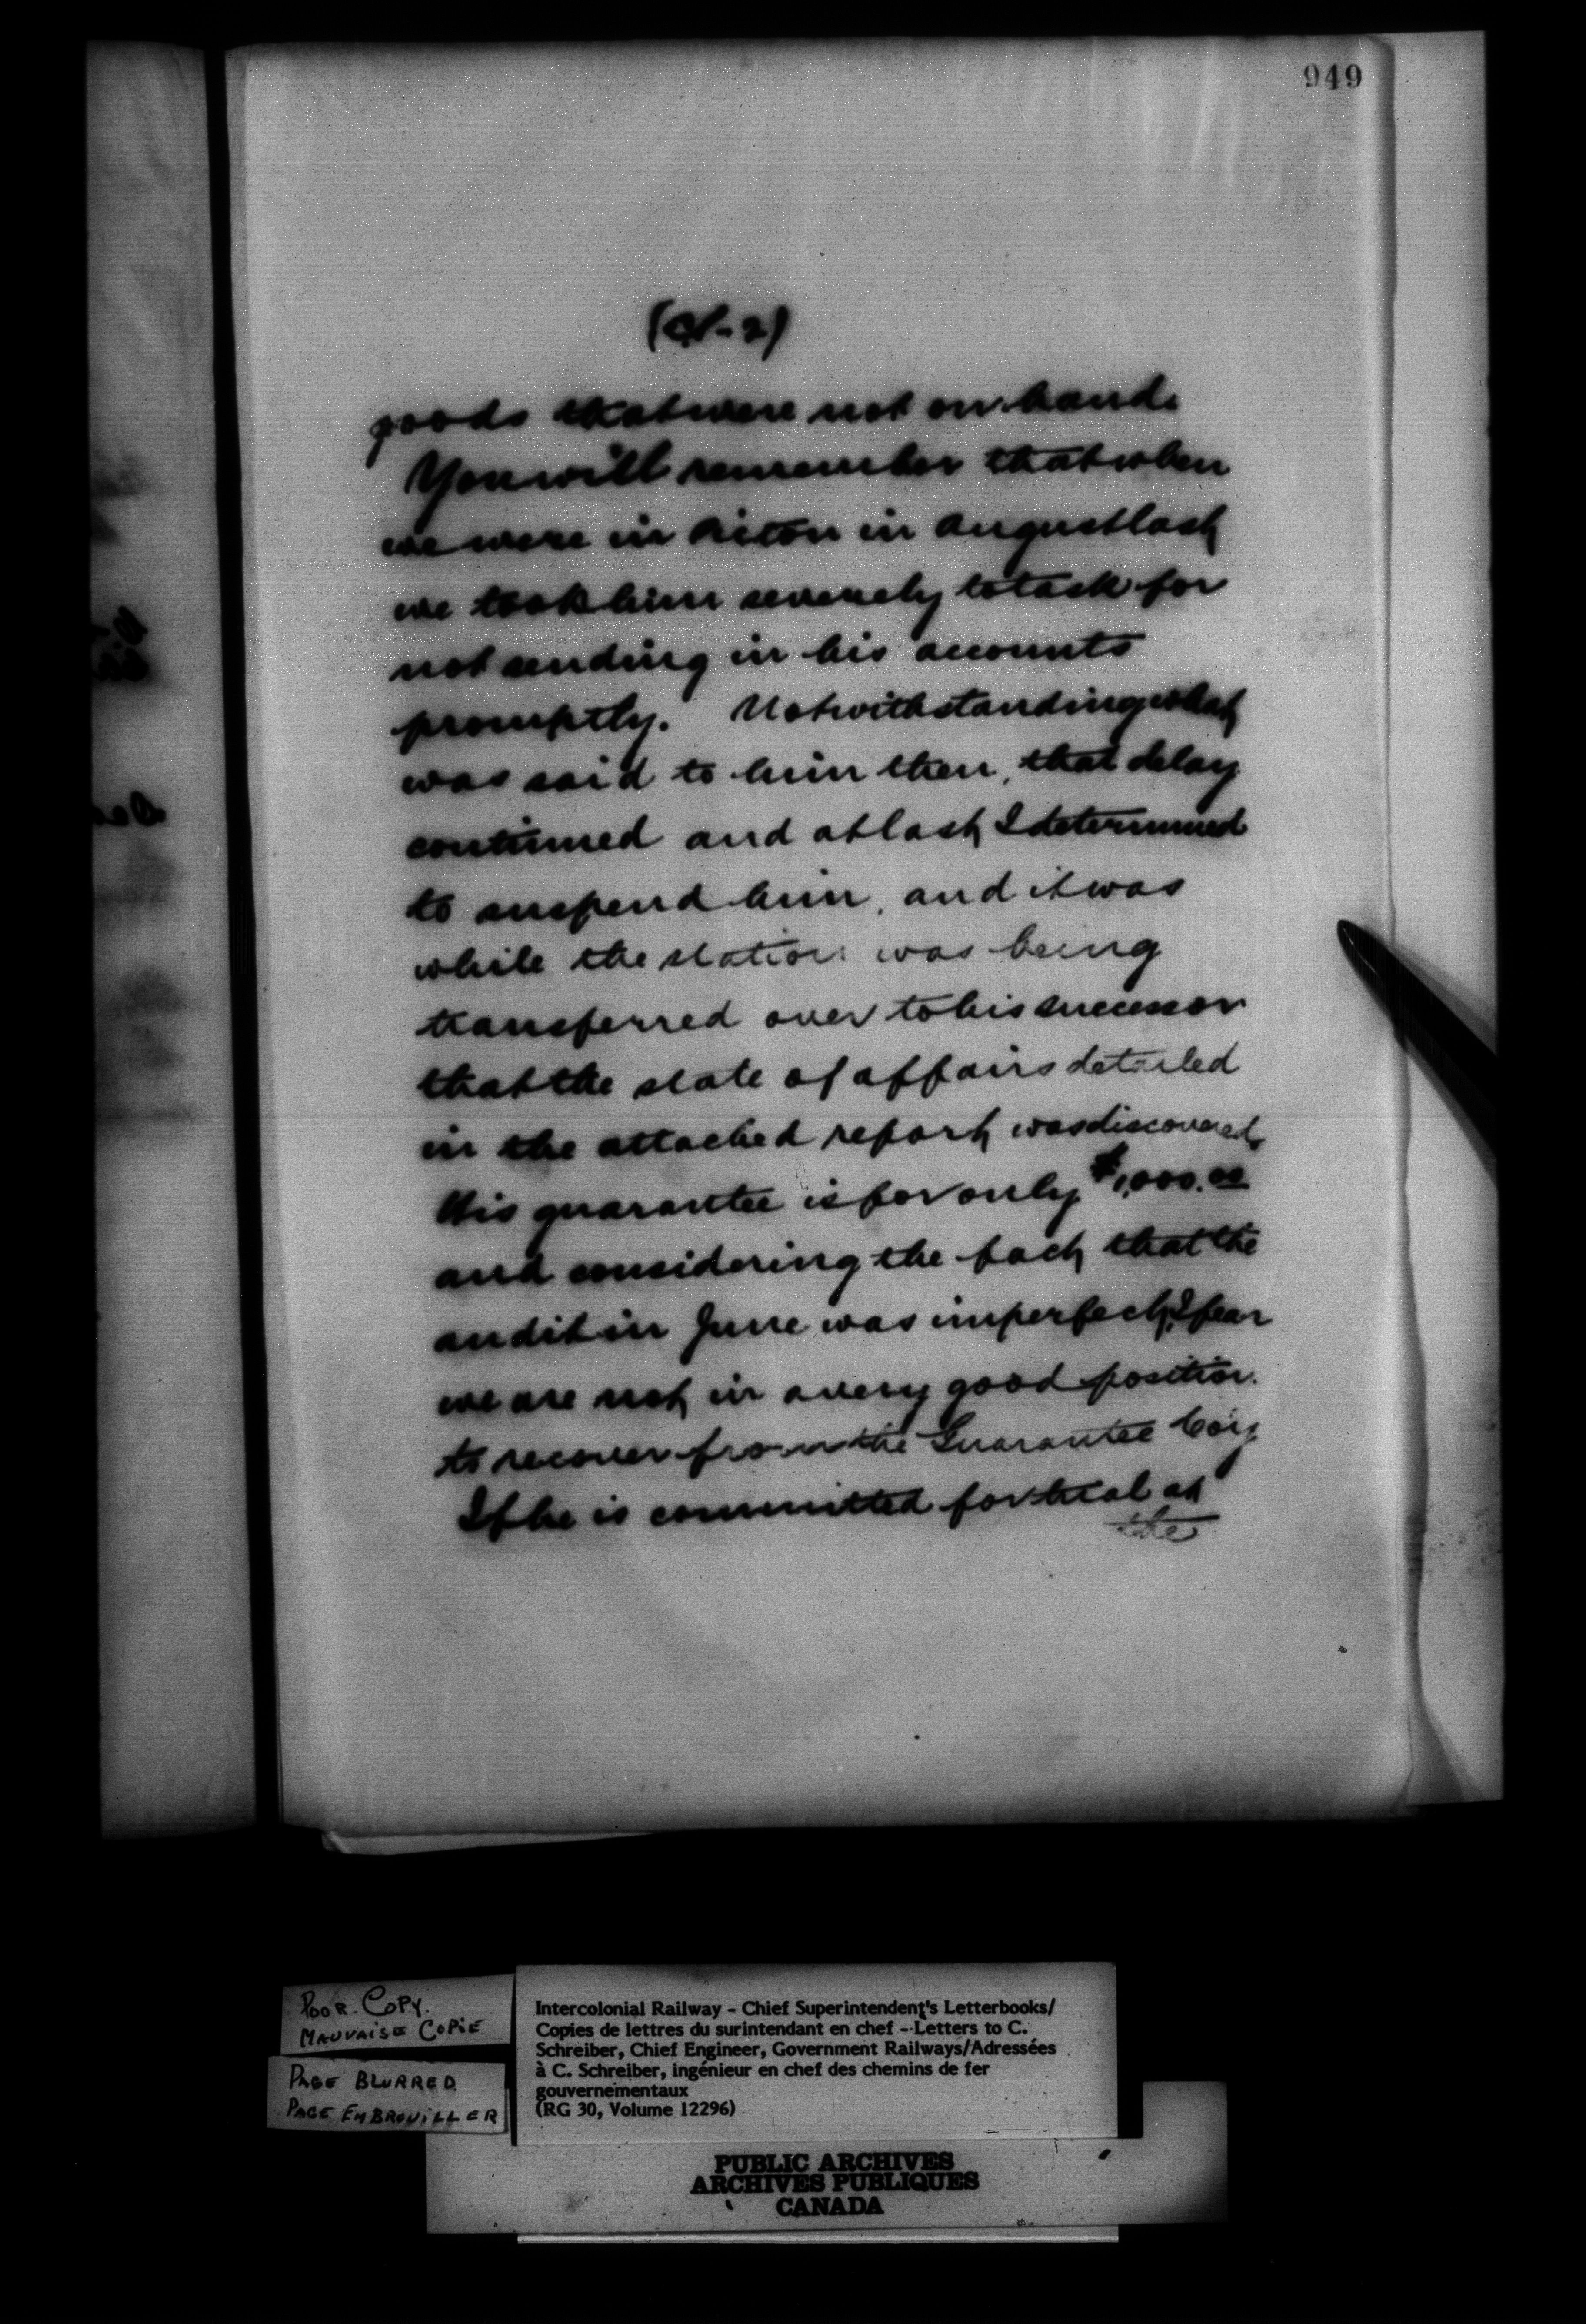 949
goods that were not on hand.
You will remember that when
we were in Picton in August last
we took him severely to task for
not sending in his accounts
promptly. Notwithstanding what
was said to him then, that delay
continued and at last I determined
to suspend him, and it was
while the station was being
transferred over to his successor
that the state of affairs detailed
in the attached report was discovered.
His guarantee is for only $1,000.00
and considering the fact that the
audit in June was imperfect, I fear
we are not in a very good position
to recover from the Guarantee Coy
If he is committed for trial at
the
POOR COPY.
MAUVAISE COPIE
PAGE BLURRED
PAGE EMBROUILLER
Intercolonial Railway - Chief Superintendent's Letterbooks/
Copies de lettres du surintendant en chef - Letters to C.
Schreiber, Chief Engineer, Government Railways/Adressées
à C. Schreiber, ingénieur en chef des chemins de fer
gouvernementaux
(RG 30, Volume 12296)
PUBLIC ARCHIVES
ARCHIVES PUBLIQUES
CANADA